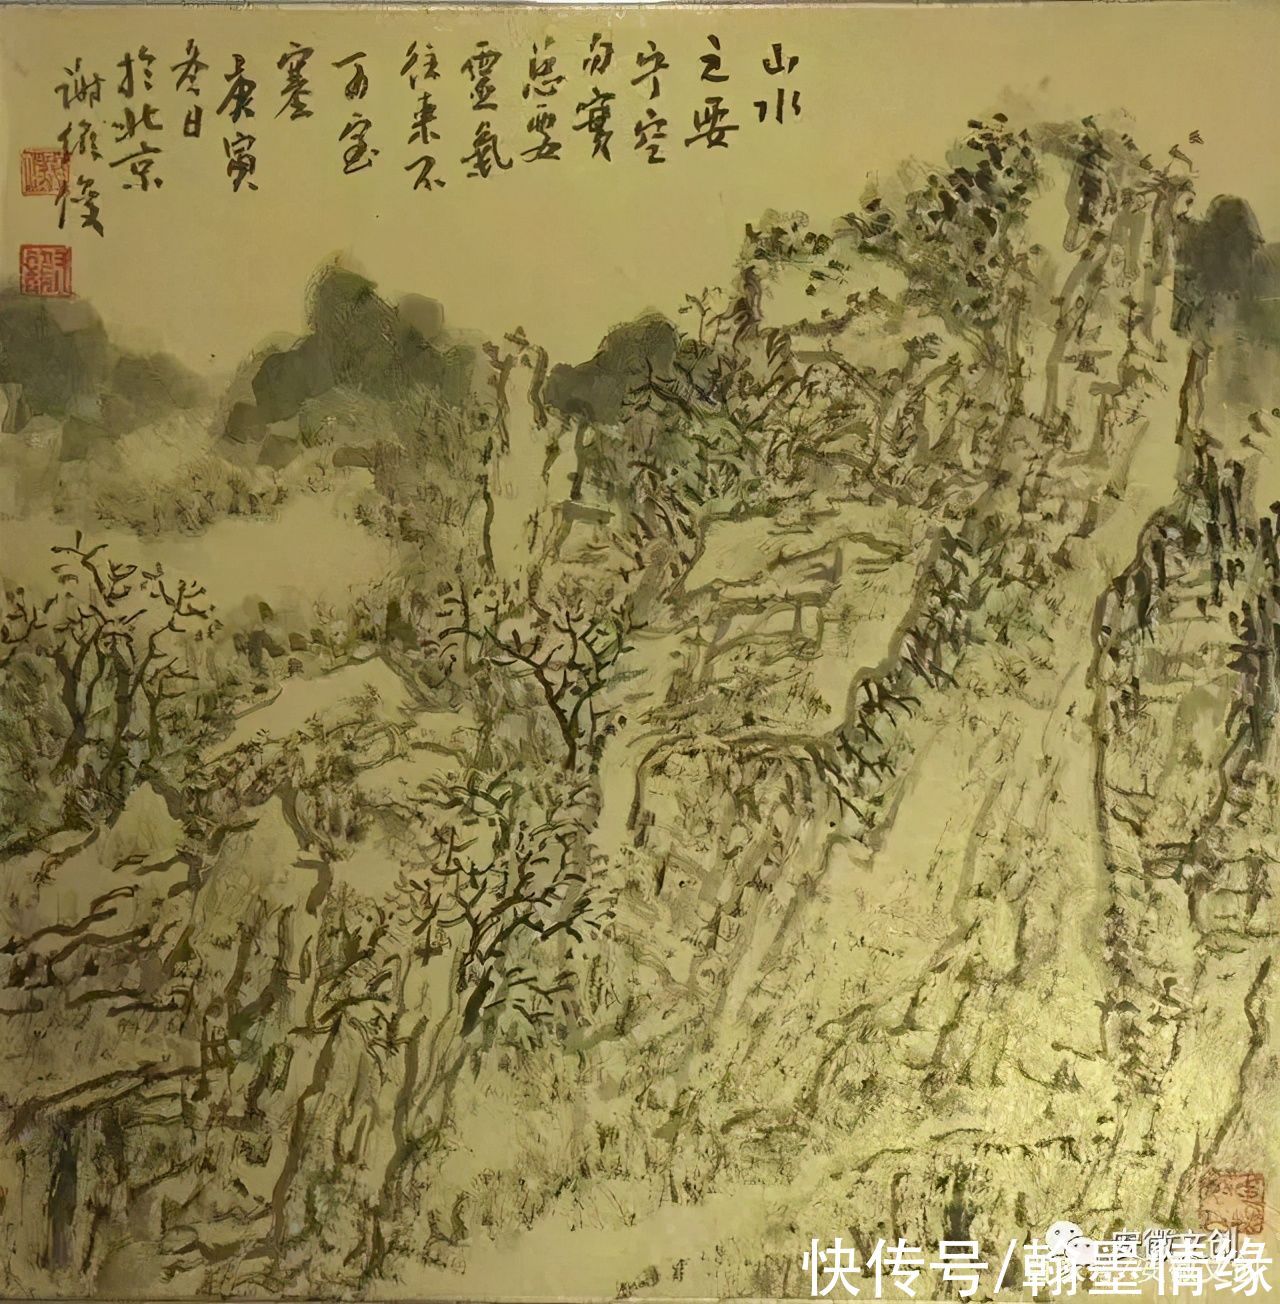 山水
之要
宁空
勿實
总要
靈氣
往来不
可窒
塞
庚寅
冬日
於北京
快传号/翰墨情缘